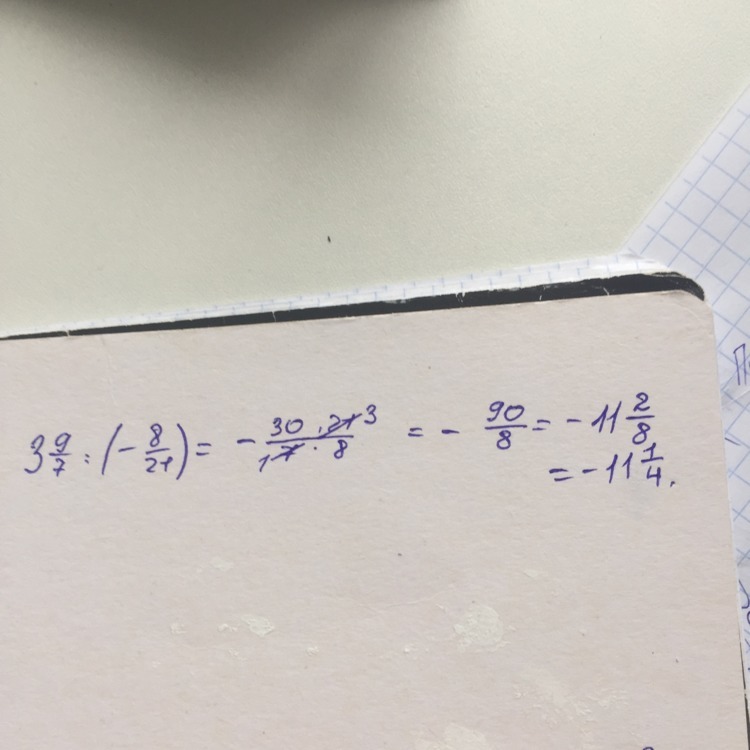 3 9/7 : (- 8/21) = - 30 · 21 3 / 1 7 · 8 = - 90/8 = - 11 2/8
= - 11 1/4.